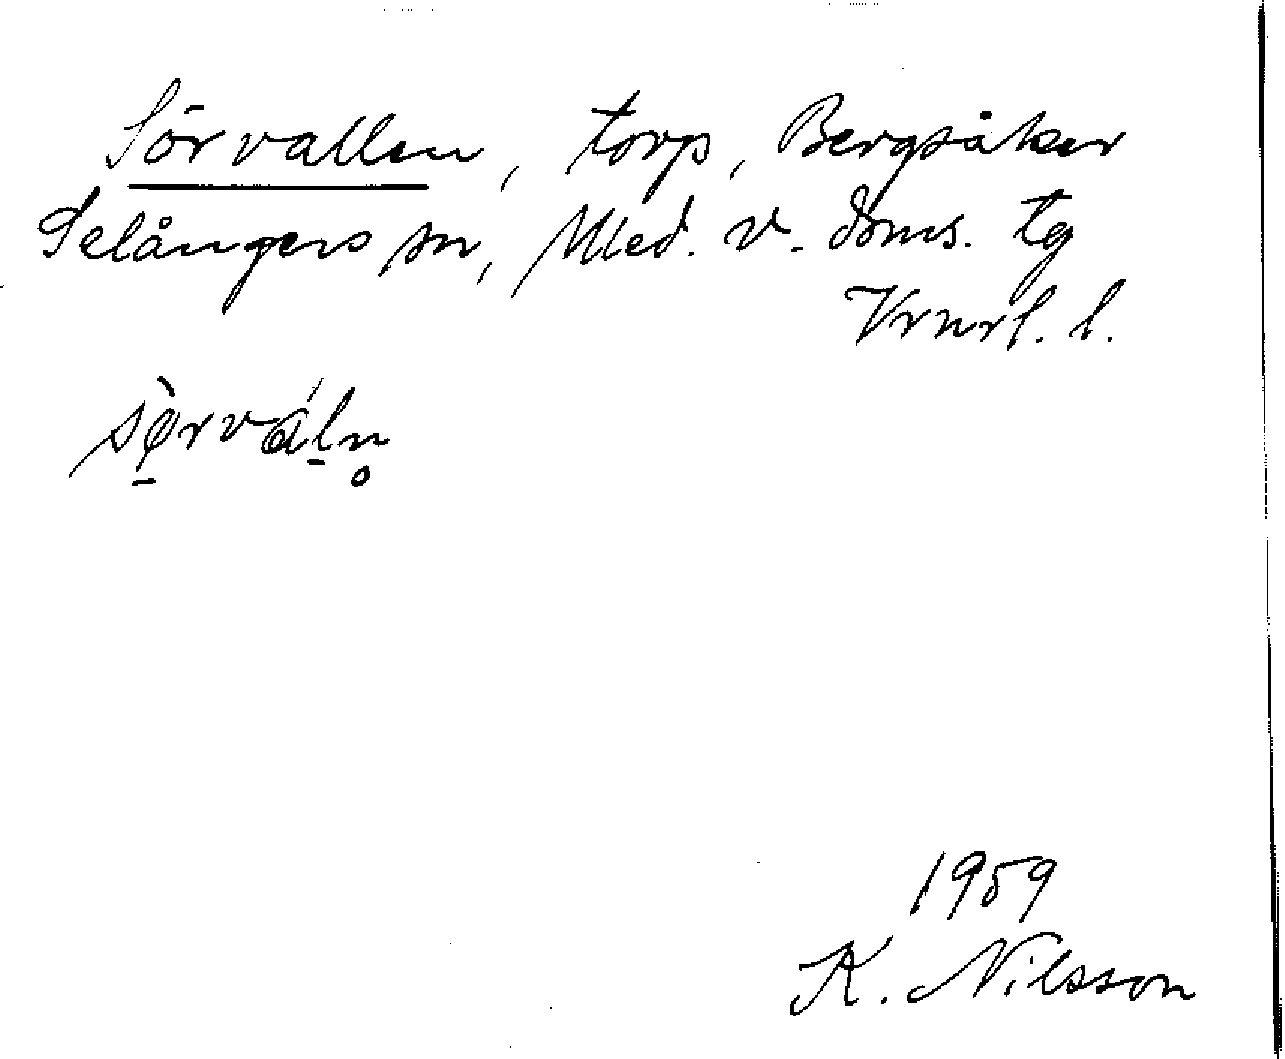 Sörvallen, torp, Bergsåker
Selångers sn, Med. v. doms. tg
Vrnrl. l.
sø̱̀rváḻn̥
1959
K. Nilsson